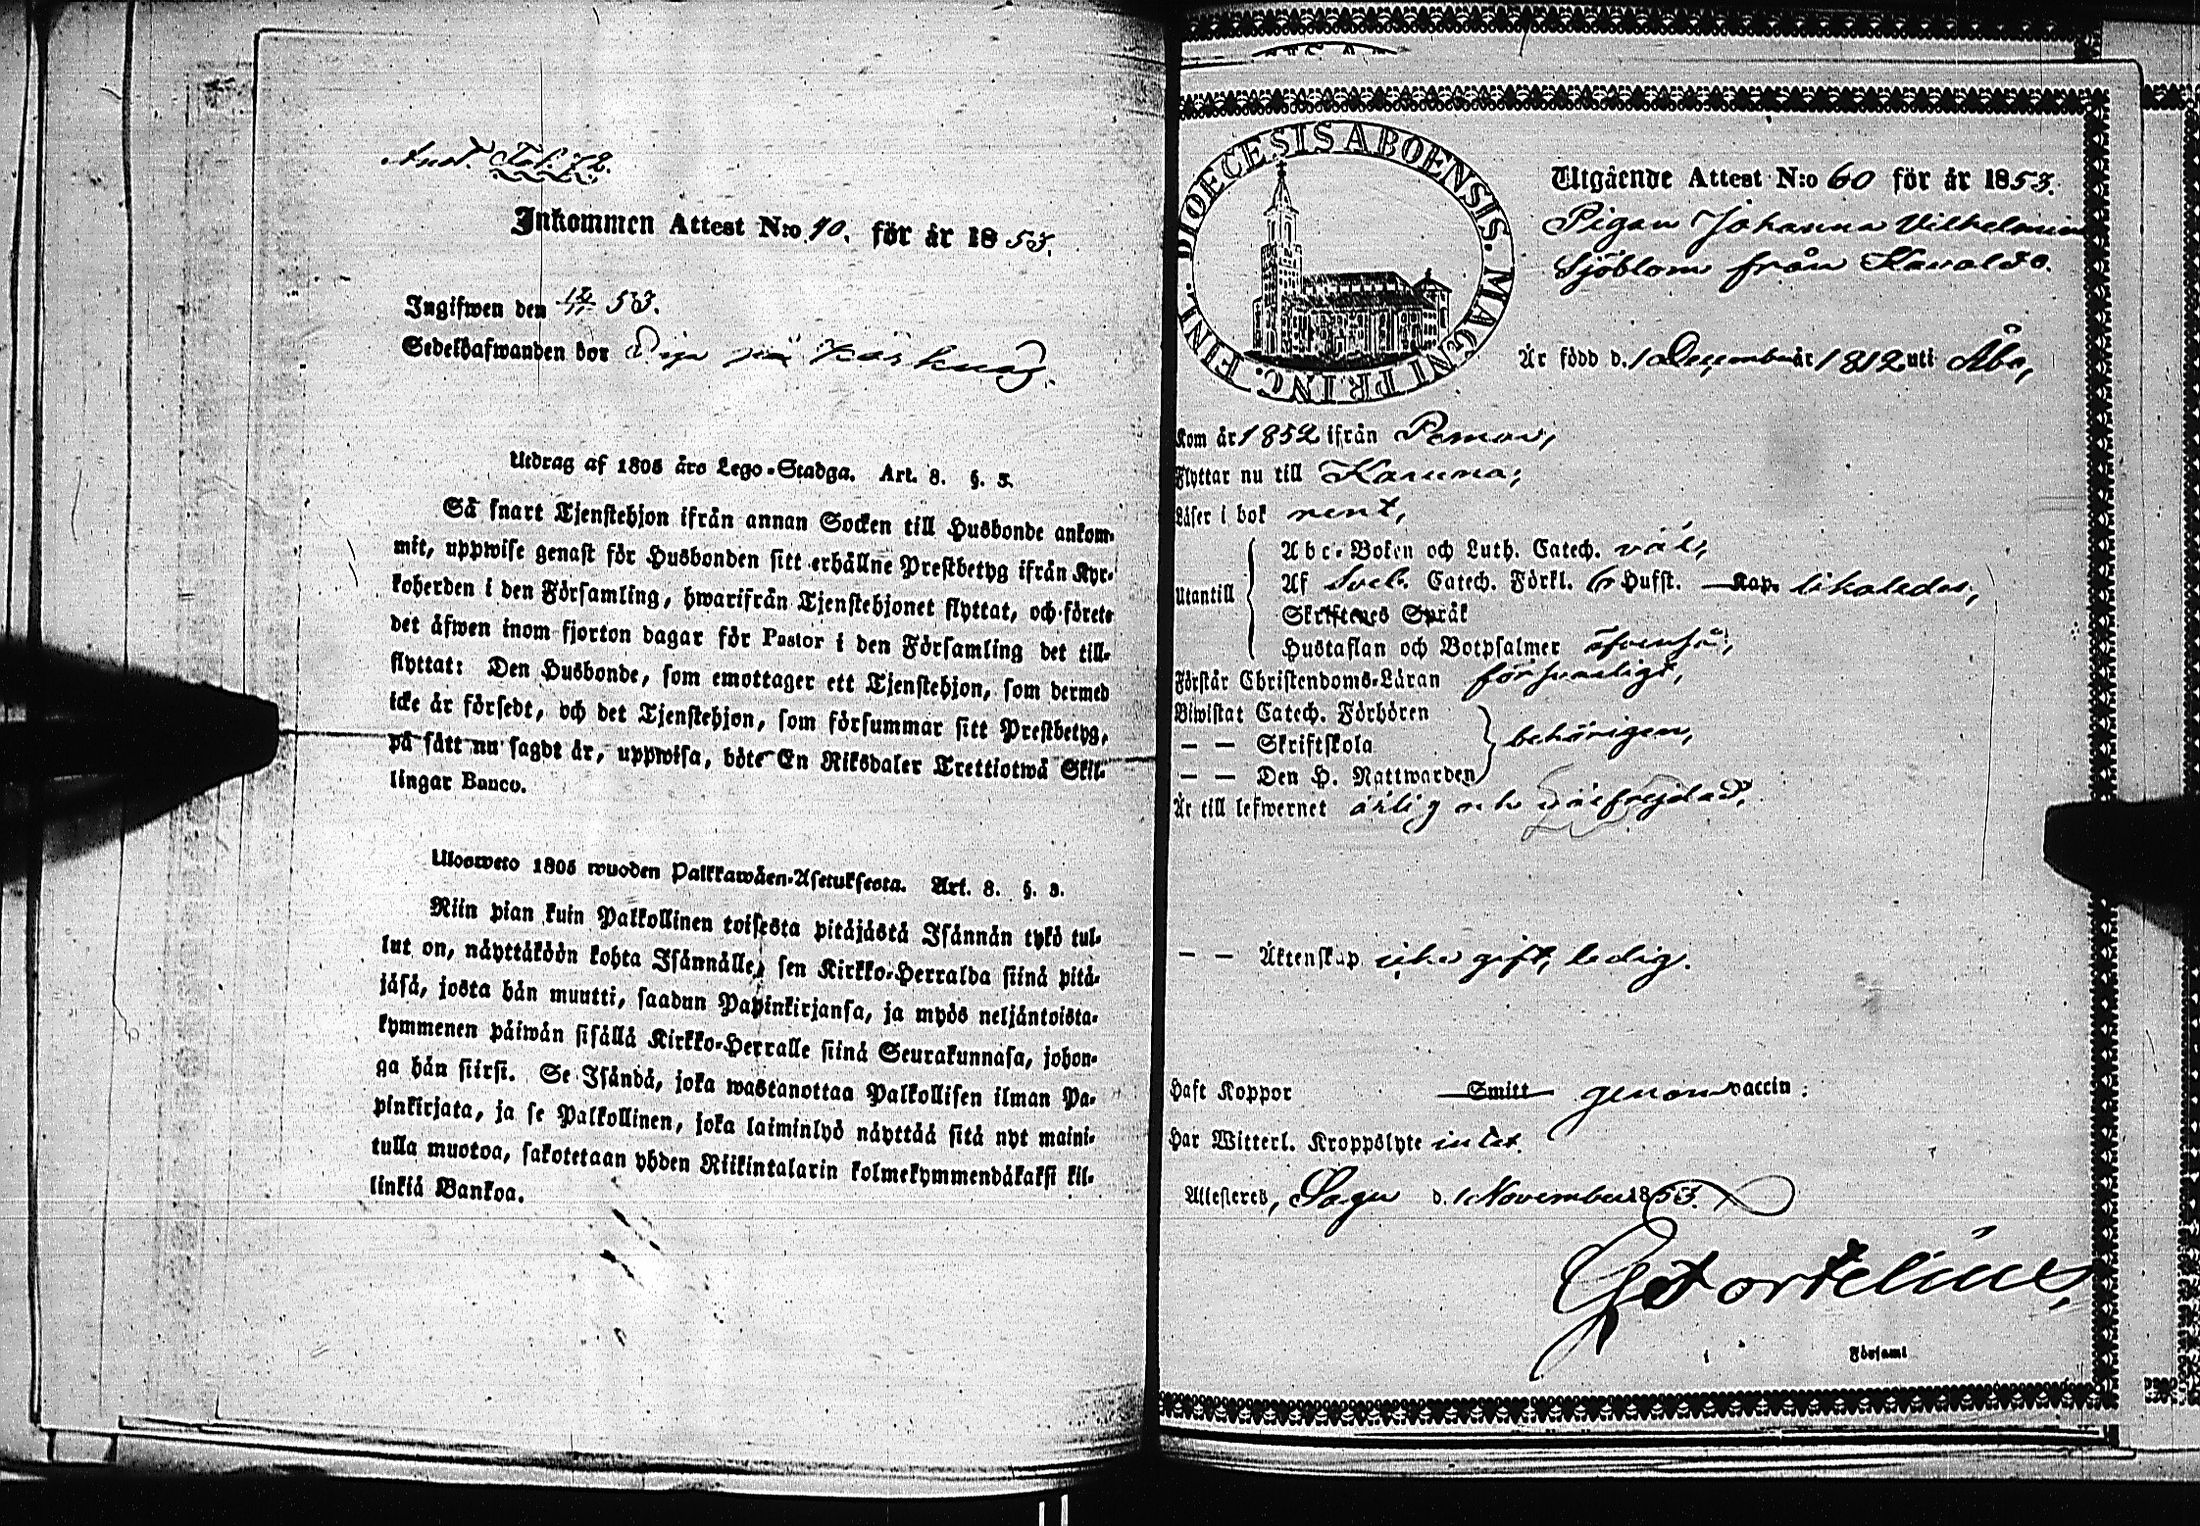 Anot. Fol. 72.
Inkommen Attest N:o 40. för år 1853.
Ingifwen den 12/11 53.
Sedelhafwanden bor Piga på Kärknäs.
Utdrag af 1805 års Lego-Stadga. Art. 8. §. 5.
Så snart Tjenstehjon ifrån annan Socken till Husbonde ankom-
mit, uppwise genast för Husbonden sitt erhållne Prestbetyg ifrån Kyr-
koherden i den Församling, hwarifrån Tjenstehjonet flyttat, och förete
det äfwen inom fjorton dagar för Pastor i den Församling det till-
flyttat: Den Husbonde, som emottager ett Tjenstehjon, som dermed
icke är försedt, och det Tjenstehjon, som försummar sitt Prestbetyg,
på sätt nu sagdt är, uppwisa, böte En Riksdaler Trettiotwå Skil-
lingar Banco.
Ulosweto 1805 wuoden Palkkawäen-Asetuksesta. Art. 8. §. 5.
Niin pian kuin Palkollinen toisesta pitäjästä Isännän tykö tul-
lut on, näyttäköön kohta Isännälle, sen Kirkko-Herralda siinä pitä-
jäsä, josta hän muutti, saadun Papinkirjansa, ja myös neljäntoista-
kymmenen päiwän sisällä Kirkko-Herralle siinä Seurakunnasa, johon-
ga hän siirsi. Se Isändä, joka wastanottaa Palkollisen ilman Pa-
pinkirjata, ja se Palkollinen, joka laiminlyö näyttää sitä nyt maini-
tulla muotoa, sakotetaan yhden Riikintalarin kolmekymmendäkaksi kil-
linkiä Bankoa.
DIOECESIS ABOENSIS. MAGNI PRINC. FINL.
Utgående Attest N:o 60 för år 1853.
Pigan Johanna Vilhelmina
Sjöblom från
Är född d. 1 December år 1812 uti Åbo,
Kom år 1852 ifrån Pemar,
Flyttar nu till Karuna,
Läser i bok rent,
Utantill
Abc-Boken och Luth. Catech. väl,
Af Sveb. Catech. Förkl. 6 Hufst. Kap. likaledes,
Skriftenes Språk
Hustaflan och Botpsalmer äfvenså,
Förstår Christendoms-Läran försvarligt,
Biwistat Catech. Förhören
— — Skriftskola behörigen,
— — Den H. Nattwarden
Är till lefwernet ärlig och välfrejdad,
— — Äktenskap icke gift, ledig.
Haft Koppor Smitt genom vaccin:
Har Witterl. Kroppslyte intet.
Attesteres, Sagu d. 1 November 1853.
Församl